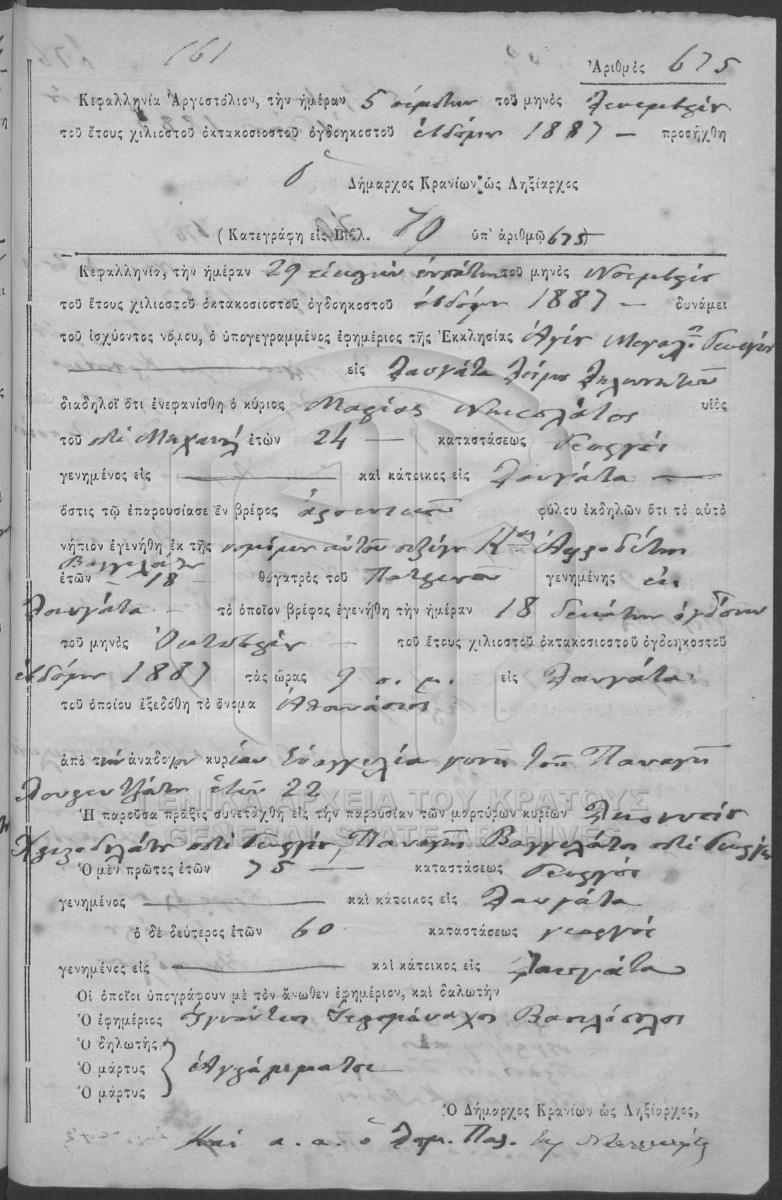 161
Ἀριθμὸς 675
Κεφαλληνία Ἀργεστόλιον, τὴν ἡμέραν 5 πέμπτην τοῦ μηνὸς Δεκεμβρίου
τοῦ ἔτους χιλιοστοῦ ὀκτακοσιοστοῦ ὀγδοηκοστοῦ ἑβδόμου 1887 — προσήχθη
ὁ Δήμαρχος Κρανίων ὡς Ληξίαρχος
(Κατεγράφη εἰς Βιβλ. 70 ὑπ' ἀριθμῷ 675)
Κεφαλληνία, τὴν ἡμέραν 29 εἰκοστὴν ἐννάτην τοῦ μηνὸς Νοεμβρίου
τοῦ ἔτους χιλιοστοῦ ὀκτακοσιοστοῦ ὀγδοηκοστοῦ ἑβδόμου 1887 — δυνάμει
τοῦ ἰσχύοντος νόμου, ὁ ὑπογεγραμμένος ἐφημέριος τῆς Ἐκκλησίας Ἁγίου Γεωργίου
εἰς Δαυγάτα Δήμου
διαδηλοῖ ὅτι ἐνεφανίσθη ὁ κύριος Μαρῖνος Νικολάτος υἱὸς
τοῦ ποτὲ Μιχαὴλ ἐτῶν 24 — καταστάσεως γεωργὸς
γενημένος εἰς — καὶ κάτοικος εἰς Δαυγάτα —
ὅστις τῷ ἐπαρουσίασε ἓν βρέφος ἀρσενικοῦ φύλου ἐκδηλῶν ὅτι τὸ αὐτὸ
νήπιον ἐγενήθη ἐκ τῆς νομίμου αὐτοῦ συζύγου Κας Ἀφροδίτης
Βαγγελάτου
ἐτῶν — 18 — θυγατρὸς τοῦ γενημένης εἰς
Δαυγάτα — τὸ ὁποῖον βρέφος ἐγενήθη τὴν ἡμέραν 18 δεκάτην ὀγδόην
τοῦ μηνὸς Ὀκτωβρίου — τοῦ ἔτους χιλιοστοῦ ὀκτακοσιοστοῦ ὀγδοηκοστοῦ
ἑβδόμου 1887 τὰς ὥρας 9 π. μ. εἰς Δαυγάτα
τοῦ ὁποίου ἐξεδόθη τὸ ὄνομα Ἀθανάσιος
ἀπὸ τὴν ἀνάδοχον κυρίαν Εὐαγγελία γυνὴ τοῦ Παναγῆ
Λουρεντζάτου ἐτῶν 22
Ἡ παροῦσα πρᾶξις συνετάχθη εἰς τὴν παρουσίαν τῶν μαρτύρων κυρίων Διονυσίου
ποτὲ Γεωργίου, Παναγῆ Βαγγελάτου ποτὲ Γεωργίου
Ὁ μὲν πρῶτος ἐτῶν 75 — καταστάσεως γεωργὸς
γενημένος — καὶ κάτοικος εἰς Δαυγάτα
ὁ δὲ δεύτερος ἐτῶν 60 καταστάσεως γεωργὸς
γενημένος εἰς — καὶ κάτοικος εἰς Δαυγάτα
Οἱ ὁποῖοι ὑπογράφουν μὲ τὸν ἄνωθεν ἐφημέριον, καὶ δηλωτὴν
Ὁ ἐφημέριος Ἰγνάτιος Ἱερομόναχος
Ὁ δηλωτὴς
Ὁ μάρτυς ἀγράμματοι
Ὁ μάρτυς
Ὁ Δήμαρχος Κρανίων ὡς Ληξίαρχος,
Καὶ α. α. ὁ Δημ. Παρ.
ΓΕΝΙΚΑ ΑΡΧΕΙΑ ΤΟΥ ΚΡΑΤΟΥΣ
GENERAL STATE ARCHIVES